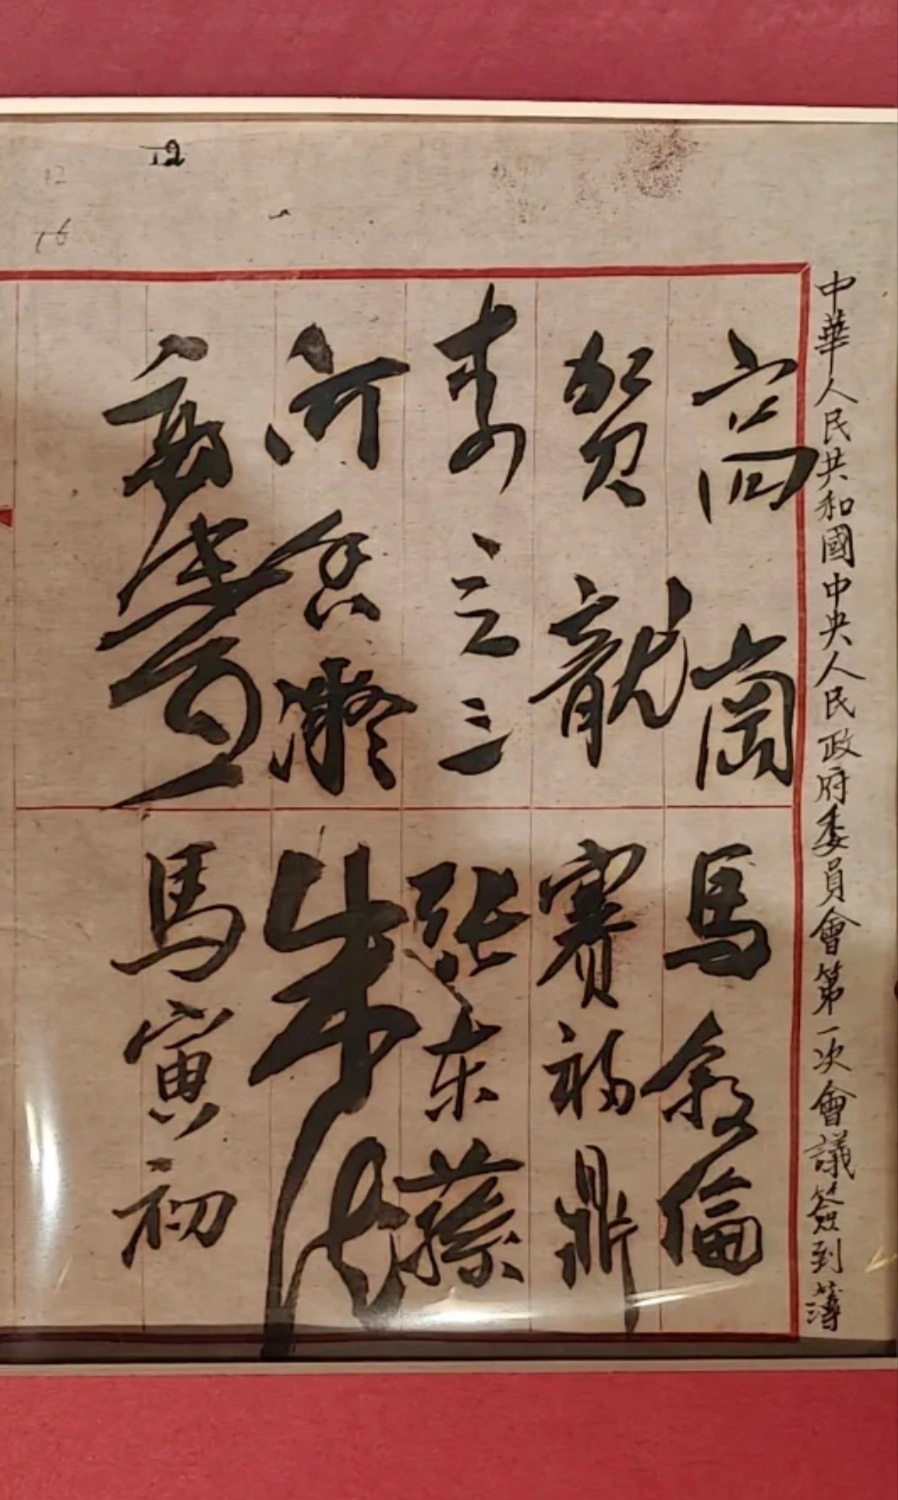 12
12
16
中華人民共和國中央人民政府委員會第一次會議簽到簿
高崗
馬叙倫
賀龍
賽福鼎
李立三
张东蓀
何香凝
朱德
馬寅初